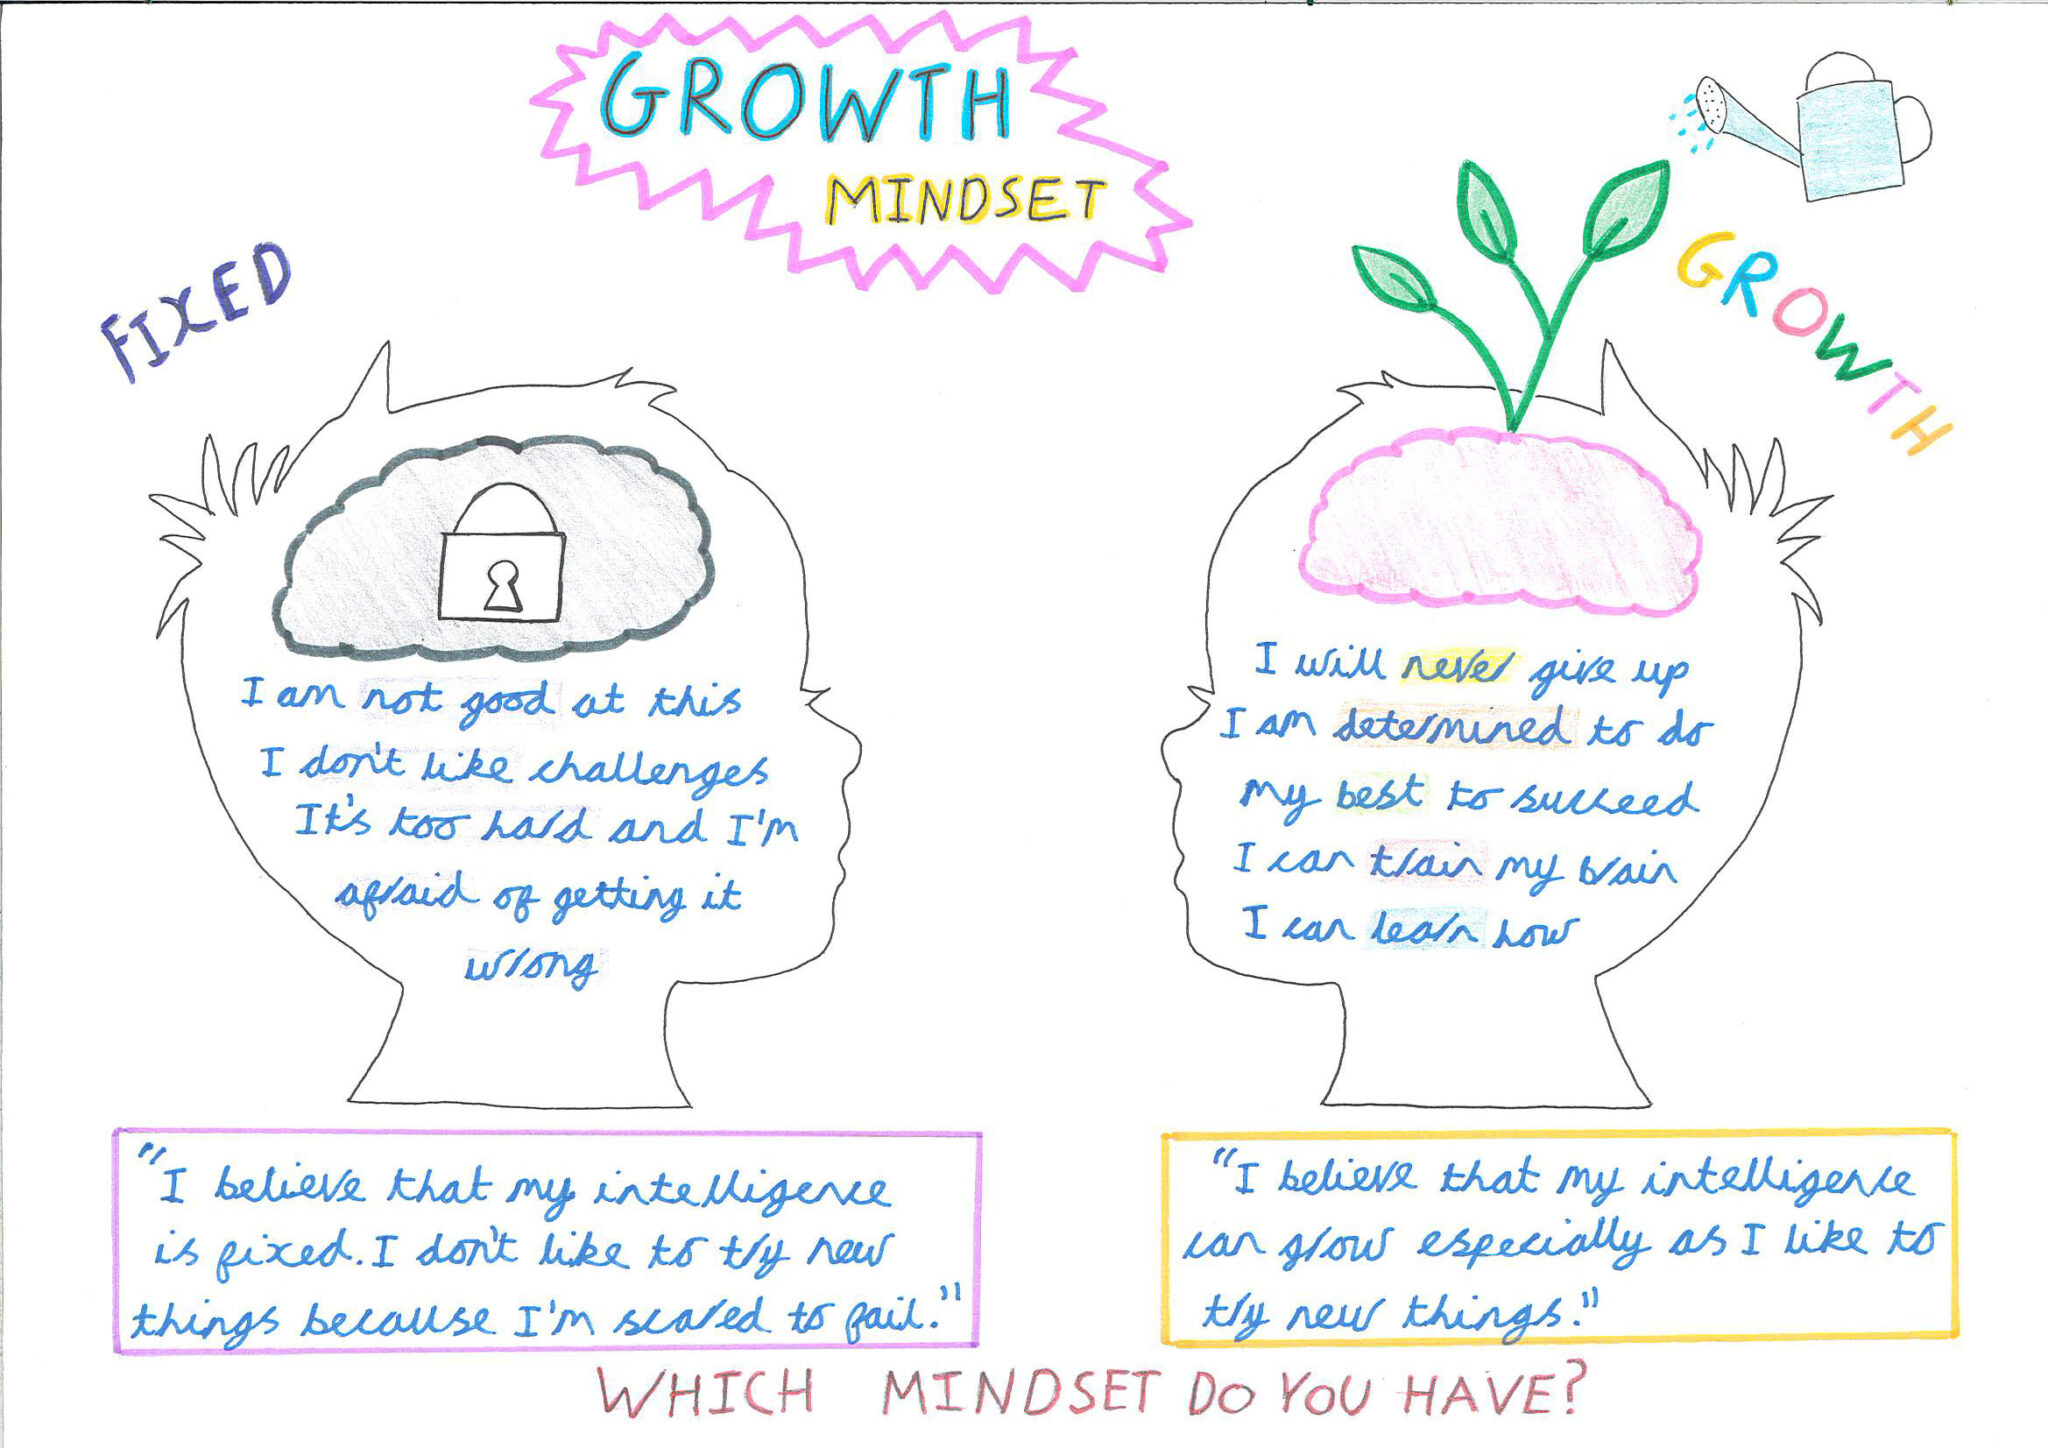 GROWTH
MINDSET
FIXED
GROWTH
I am not good at this
I don't like challenges
It's too hard and I'm
afraid of getting it
wrong
I will never give up
I am determined to do
my best to succeed
I can train my brain
I can learn how
"I believe that my intelligence
is fixed. I don't like to try new
things because I'm scared to fail."
"I believe that my intelligence
can grow especially as I like to
try new things."
WHICH MINDSET DO YOU HAVE?